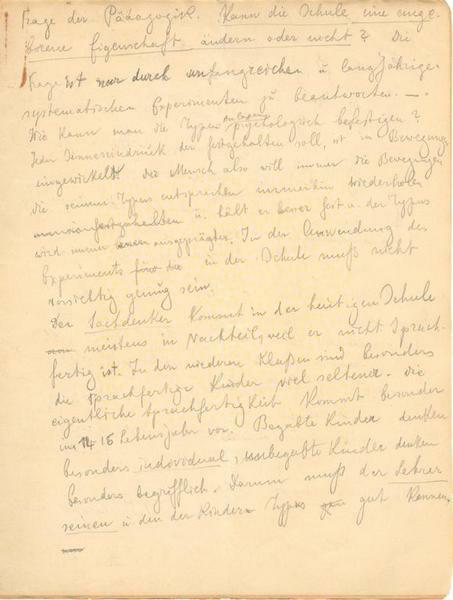 Frage der Pädagogik. Kann die Schule eine ange-
borene Eigenschaft ändern oder nicht? Die
Frage ist nur durch umfangreichen u. langjährige
systematischen Experimenten zu beantworten. —.
Wie kann man die Typen psychologisch befestigen?
Jeder Sinneseindruck der festgehalten soll, ist in Bewegung
eingewickelt. Die Mensch also will immer die Bewegungen
die seiner Typus entsprechen immerhin wiederholen
u. hält er besser fest u. der Typus
wird immer ausgeprägter. In der Anwendung des
Experiments in der Schule muß nicht
vorsichtig genug sein.
Der Sachdenker kommt in der heutigen Schule
meistens in Nachteil, weil er nicht Sprach-
fertig ist. In den niederen Klaßen sind besonders
die sprachfertige Kinder viel seltener. Die
eigentliche Sprachfertigkeit kommt besonder
im 14 15 Lebensjahr vor. Begabte Kinder denken
besonders individual, unbegabte Kinder denken
besonders begrifflich. Darum muß der Lehrer
seinen u. den der Kindern Typus gut kennen.